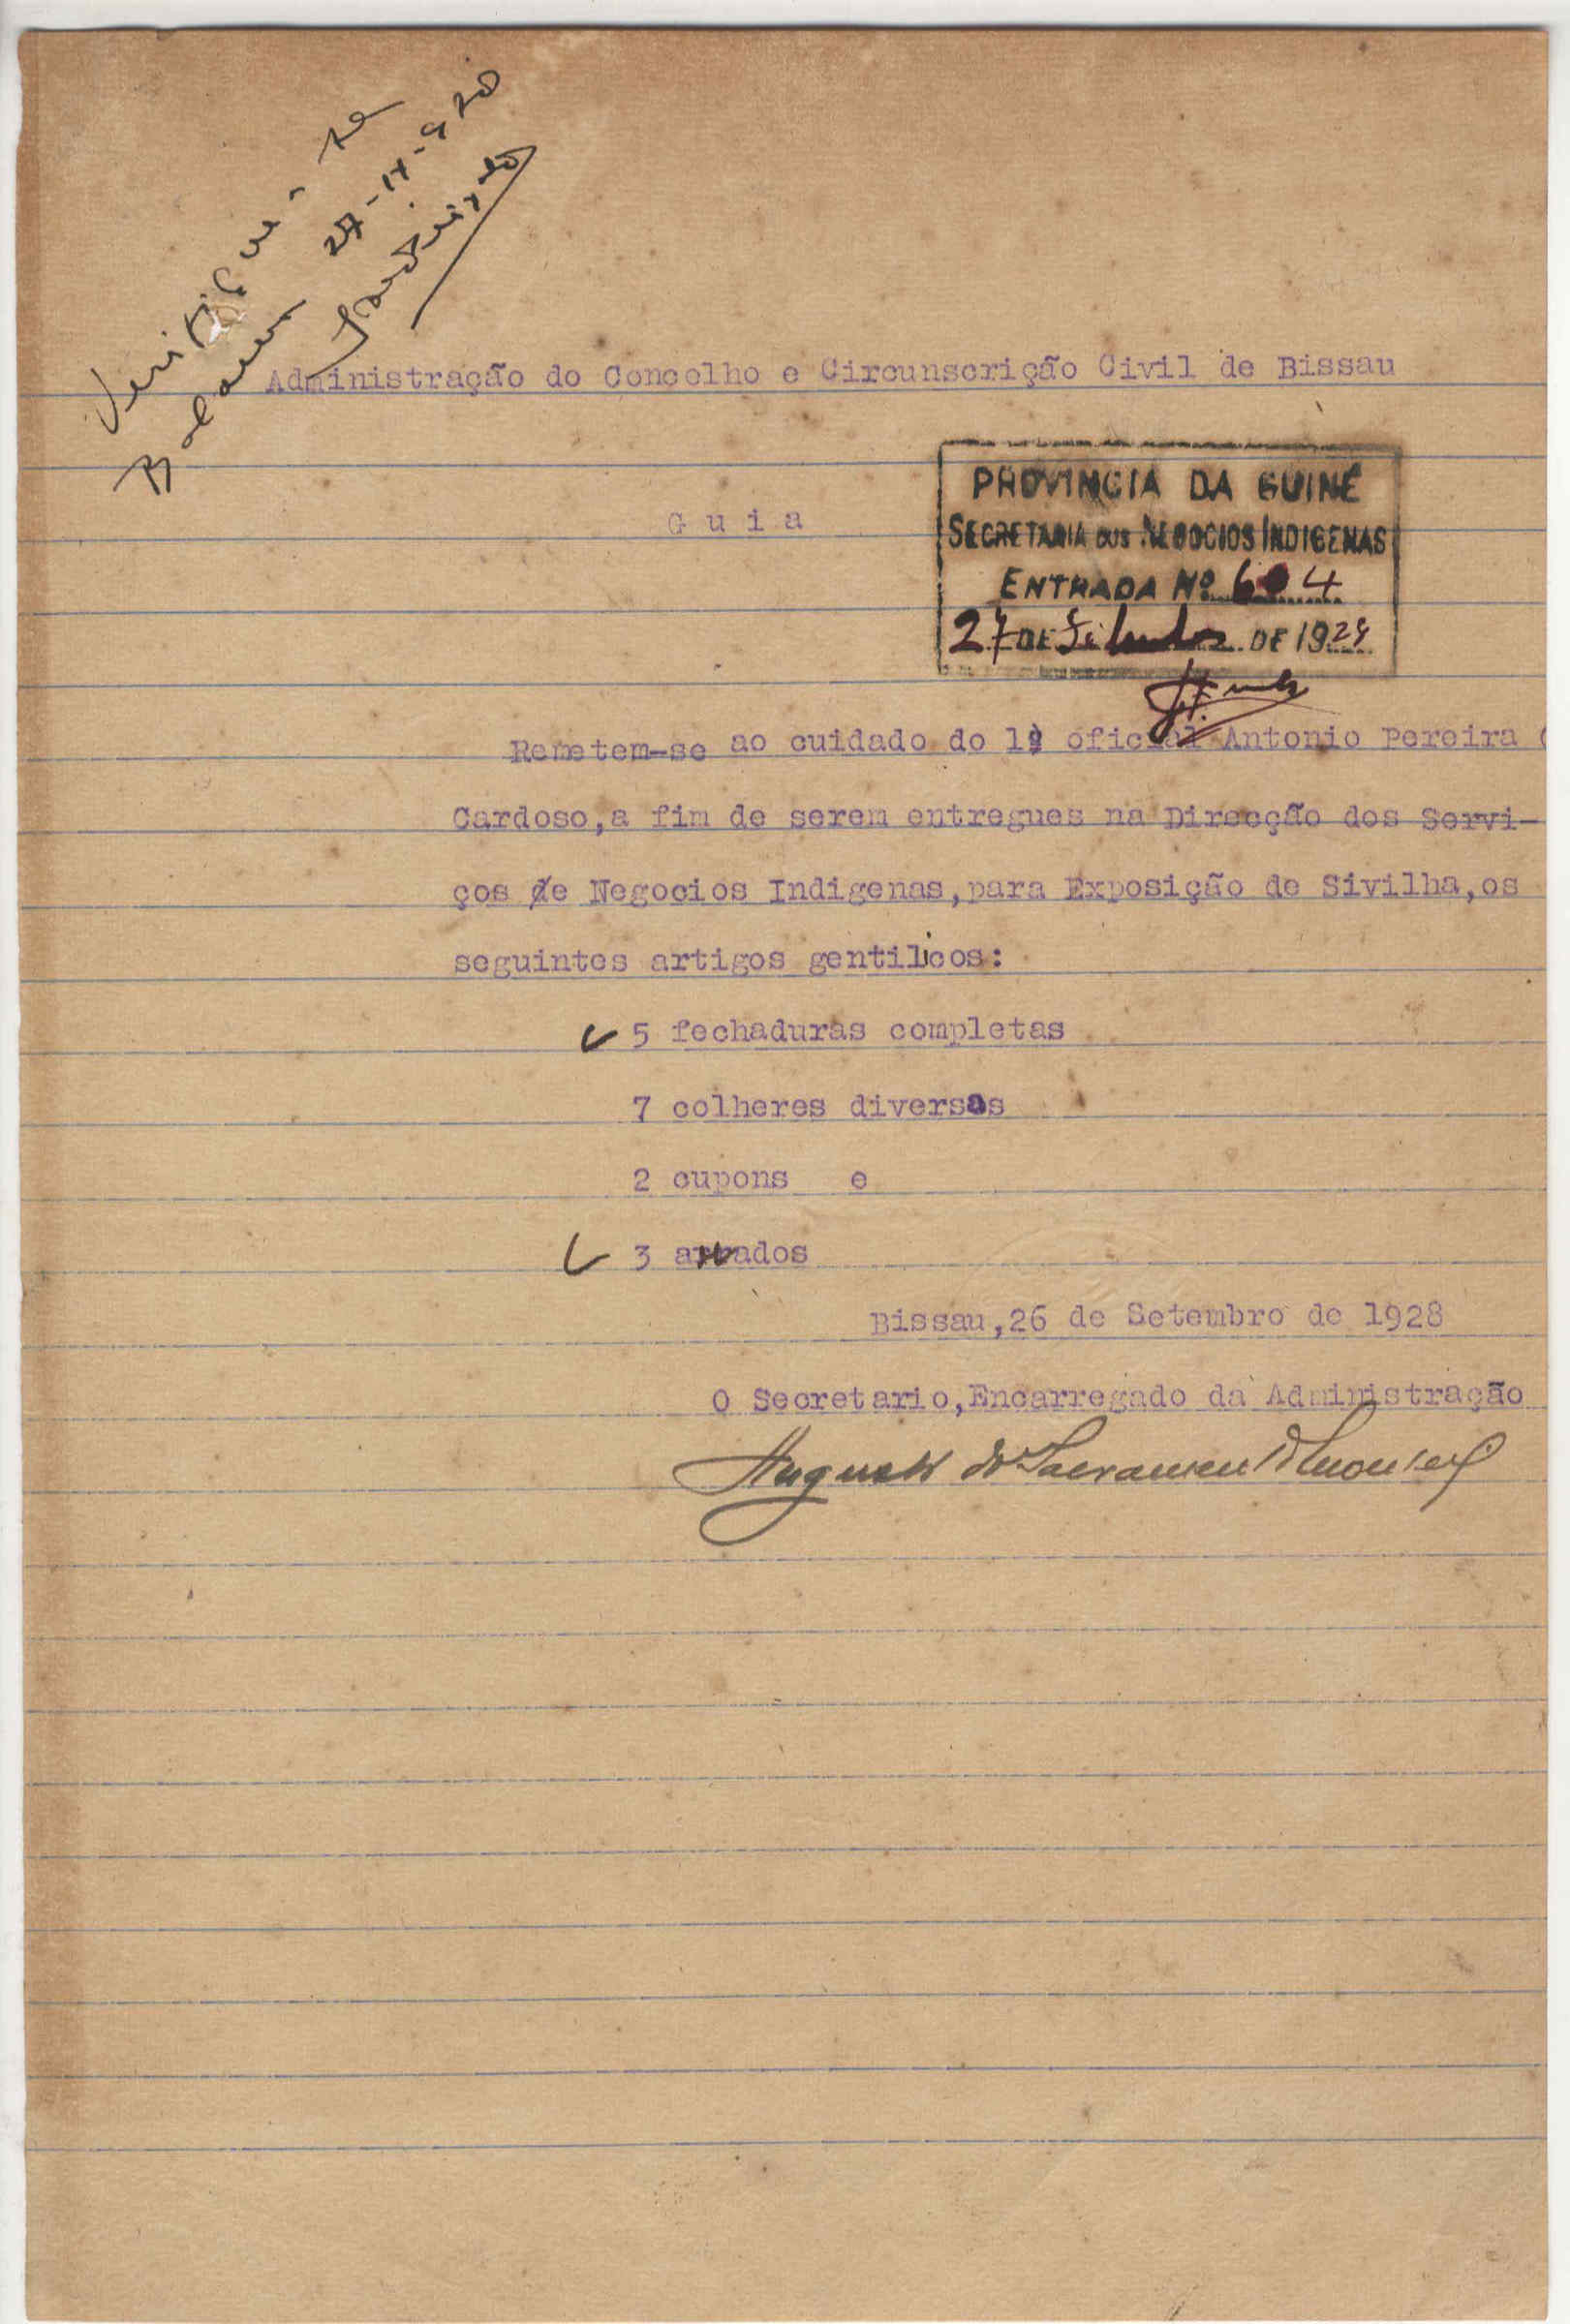 Verifique-se
Bolama 27-IX-928
Administração do Concelho e Circunscrição Civil de Bissau
PROVINCIA DA GUINÉ
G u i a
SECRETARIA DOS NEGOCIOS INDIGENAS
ENTRADA Nº 604
27 DE Setembro DE 1928
Remetem-se ao cuidado do 1º oficial Antonio Pereira
Cardoso,a fim de serem entregues na Direcção dos Servi-
ços de Negocios Indigenas,para Exposição de Sivilha,os
seguintes artigos gentilicos:
5 fechaduras completas
7 colheres diversas
2 cupons e
3 arados
Bissau,26 de Setembro de 1928
O Secretario,Encarregado da Administração
Augusto do Sacramento Monteiro